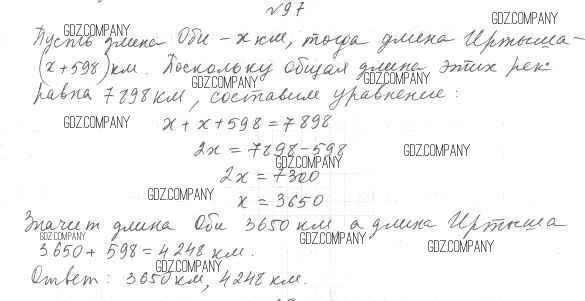 №97
GDZ.COMPANY
GDZ.COMPANY
Пусть длина Оби – x км, тогда длина Иртыша –
(x+598) км. Поскольку общая длина этих рек
GDZ.COMPANY
GDZ.COMPANY
равна 7898 км, составим уравнение:
GDZ.COMPANY
x + x + 598 = 7898
2x = 7898 – 598
GDZ.COMPANY
GDZ.COMPANY
2x = 7300
GDZ.COMPANY
x = 3650
Значит длина Оби 3650 км а длина Иртыша
GDZ.COMPANY
GDZ.COMPANY
3650 + 598 = 4248 км.
GDZ.COMPANY
GDZ.COMPANY
Ответ: 3650 км, 4248 км.